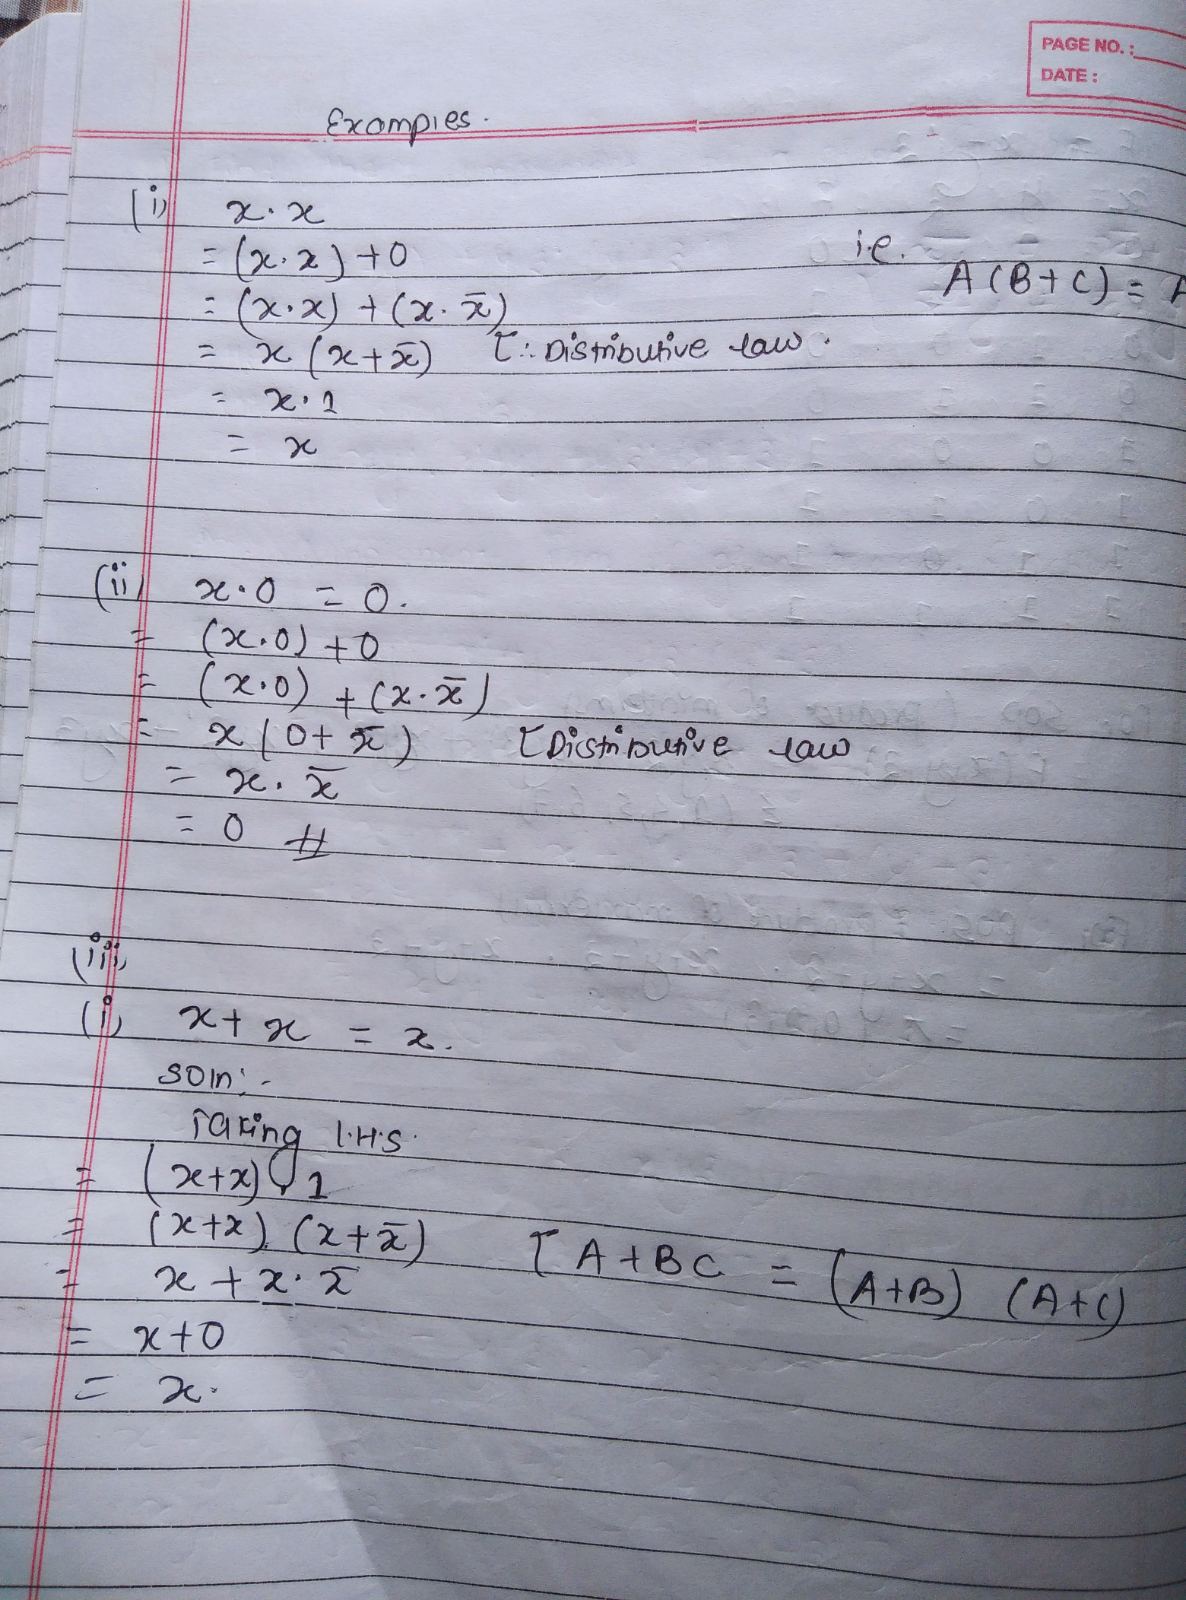 PAGE NO.:
DATE:
Examples.
(i) x·x
= (x·x) + 0
i.e.
A(B+C) = A
= (x·x) + (x·x̄)
= x (x+x̄) [∵ Distributive law.
= x·1
= x
(ii) x·0 = 0.
= (x·0) + 0
= (x·0) + (x·x̄)
= x (0+x̄) [Distributive law
= x·x̄
= 0 #
(iii)
(i) x+x = x.
Soln:-
Taking L.H.S.
= (x+x) . 1
= (x+x). (x+x̄) [A+BC = (A+B) (A+C)
= x + x·x̄
= x+0
= x.